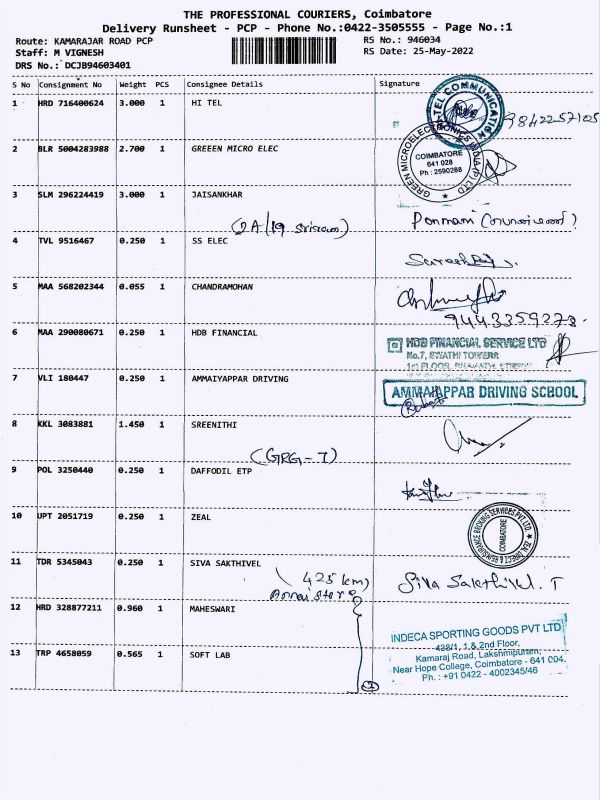 THE PROFESSIONAL COURIERS, Coimbatore
Delivery Runsheet - PCP - Phone No.:0422-3505555 - Page No.:1
Route: KAMARAJAR ROAD PCP
RS No.: 946034
Staff: M VIGNESH
RS Date: 25-May-2022
DRS No.: DCJB94603401
S No Consignment No Weight PCS Consignee Details Signature
1 HRD 716400624 3.000 1 HI TEL
TEL COMMUNICATION
9842257105
2 BLR 5004283988 2.700 1 GREEEN MICRO ELEC
GREEN MICROELECTRONICS INDIA (P) LTD
COIMBATORE
641 028
Ph : 2590288
3 SLM 296224419 3.000 1 JAISANKHAR
(2A/19 sriram)
Ponmani
4 TVL 9516467 0.250 1 SS ELEC
5 MAA 568202344 0.055 1 CHANDRAMOHAN
9443359273.
6 MAA 290080671 0.250 1 HDB FINANCIAL
HDB FINANCIAL SERVICE LTD
No.7, SWATHI TOWERS
1st FLOOR,
7 VLI 180447 0.250 1 AMMAIYAPPAR DRIVING
AMMAIYAPPAR DRIVING SCHOOL
8 KKL 3083881 1.450 1 SREENITHI
(GRG-I)
9 POL 3250440 0.250 1 DAFFODIL ETP
10 UPT 2051719 0.250 1 ZEAL
COIMBATORE
11 TDR 5345043 0.250 1 SIVA SAKTHIVEL
Siva Sakthivel. T
(425 km)
Annai store
12 HRD 328877211 0.960 1 MAHESWARI
13 TRP 4658059 0.565 1 SOFT LAB
INDECA SPORTING GOODS PVT LTD
428/1, 1 & 2nd Floor,
Kamaraj Road, Lakshmipuram,
Near Hope College, Coimbatore - 641 004.
Ph. : +91 0422 - 4002345/46